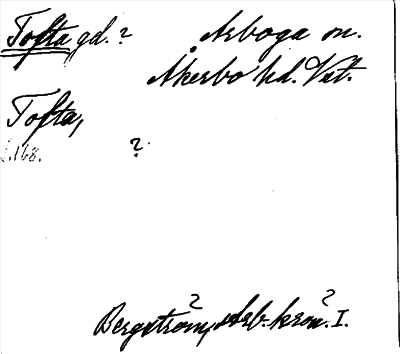 Tofta gd.? Arboga sn.
Åkerbo hd. Vst.
Tofta,
s.168. ?
Bergström, Arb. krön. I.